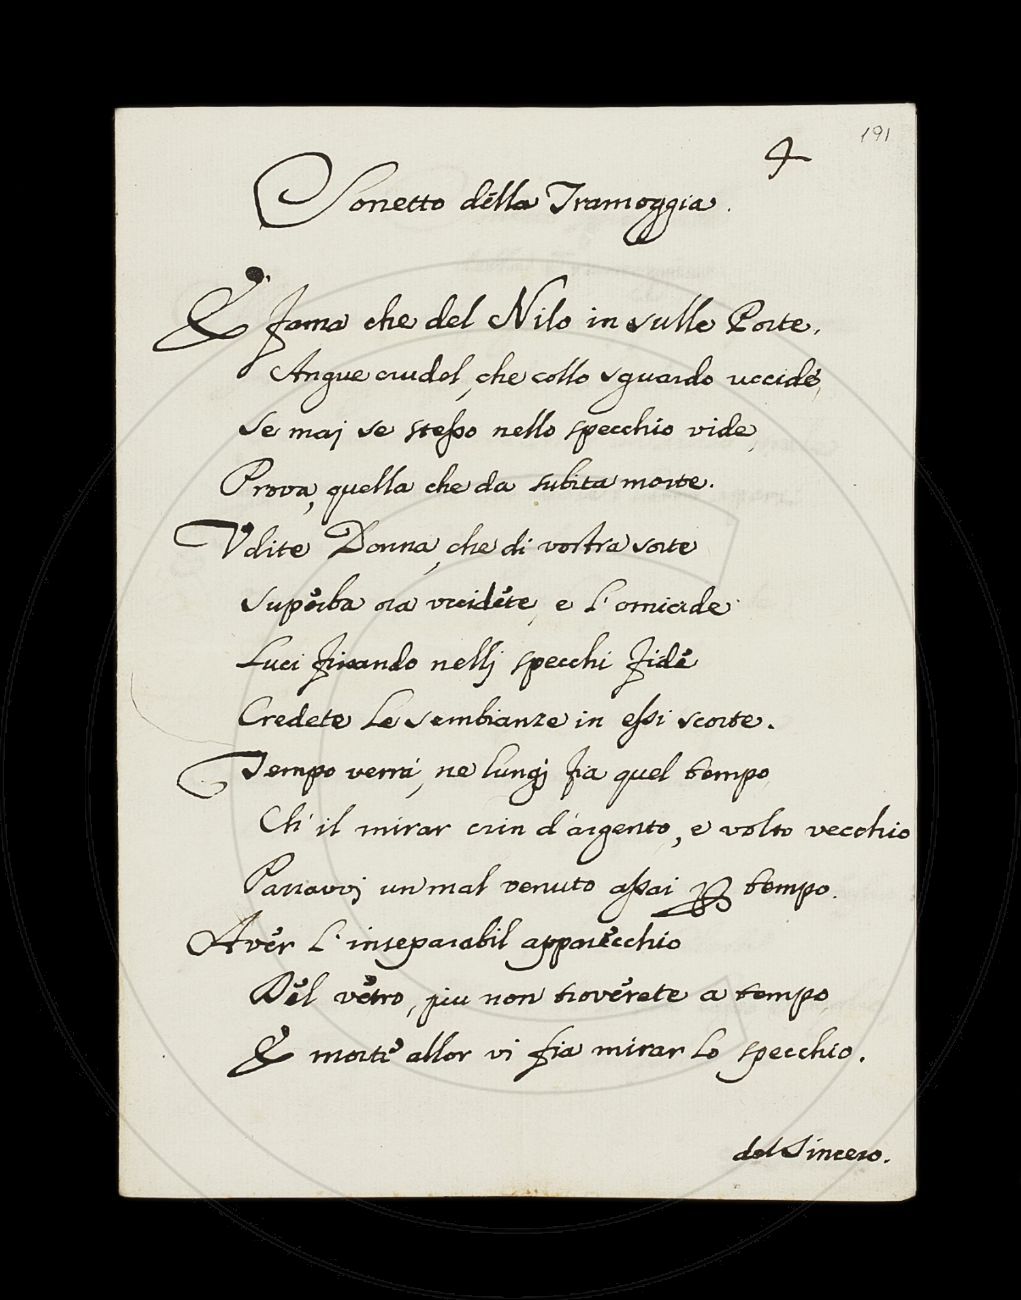 191
4
Sonetto della Tramoggia.
È fama che del Nilo in sulle Porte,
Angue crudel, che collo sguardo uccide,
Se maj se stesso nello specchio vide,
Prova, quella che da subita morte.
Vdite Donna, che di vostra sorte
Superba ora vccidete, e l'omicide
Luci fissando nellj specchi fide
Credete le sembianze in essi scorte.
Tempo verrá, ne lungj fia quel tempo
Ch' il mirar crin d'argento, e volto vecchio
Parravvj un mal venuto assai per tempo.
Aver l'inseparabil apparecchio
Del vetro, piu non troverete a tempo,
E morte allor vi fia mirar lo specchio.
del Sincero.